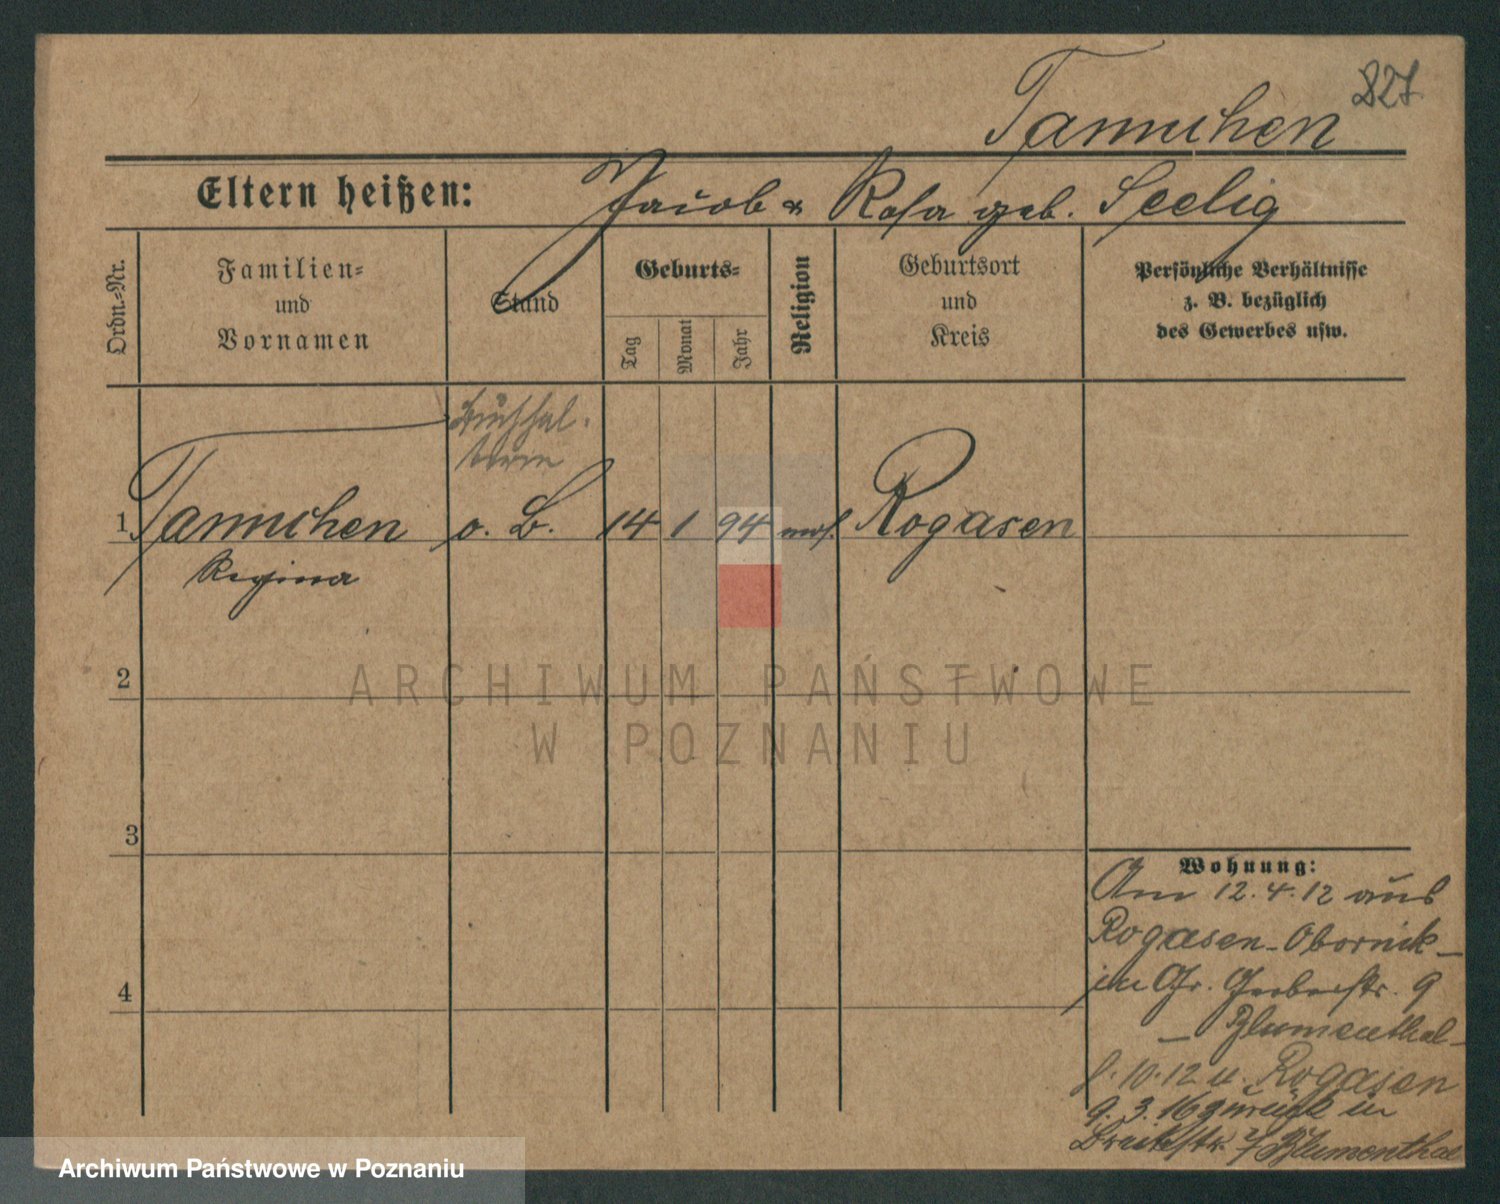 827
Tannchen
Eltern heißen: Jacob & Rosa geb. Seelig
Ordn.-Nr.
Familien-
und
Vornamen
Stand
Geburts-
Tag
Monat
Jahr
Religion
Geburtsort
und
Kreis
Persönliche Verhältnisse
z. B. bezüglich
des Gewerbes usw.
Buchhal-
terin
1 Tannchen o. B. 14 1 94 mos. Rogasen
Regina
2
3
4
Wohnung:
Am 12.4.12 aus
Rogasen-Obornik-
in Gr. Gerberstr. 9
- Blumenthal -
10.12 n. Rogasen
9.3.16 zurück in
Breitestr. Blumenthal
ARCHIWUM PAŃSTWOWE
W POZNANIU
Archiwum Państwowe w Poznaniu